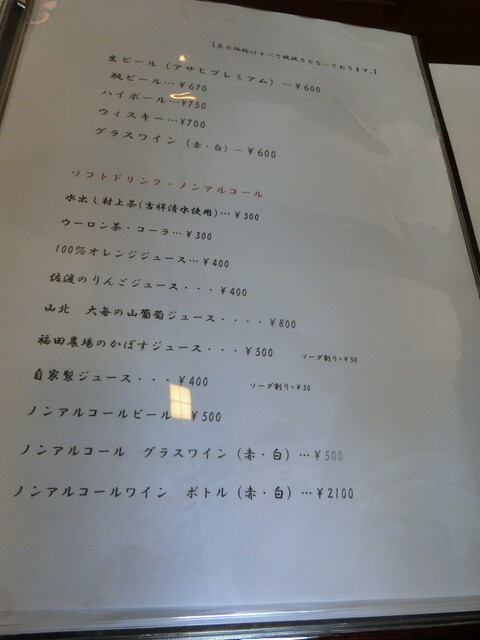 【表示価格はすべて税抜きとなっております。】
生ビール（アサヒプレミアム）…¥600
瓶ビール…¥670
ハイボール…¥750
ウィスキー…¥700
グラスワイン（赤・白）…¥600
ソフトドリンク・ノンアルコール
水出し村上茶(吉祥清水使用)…¥300
ウーロン茶・コーラ…¥300
100%オレンジジュース…¥400
佐渡のりんごジュース・・・¥400
山北　大毎の山葡萄ジュース・・・・¥800
福田農場のかぼすジュース・・・¥500　ソーダ割り+¥50
自家製ジュース・・・¥400　ソーダ割り+¥50
ノンアルコールビール　¥500
ノンアルコール　グラスワイン（赤・白）…¥500
ノンアルコールワイン　ボトル（赤・白）…¥2100